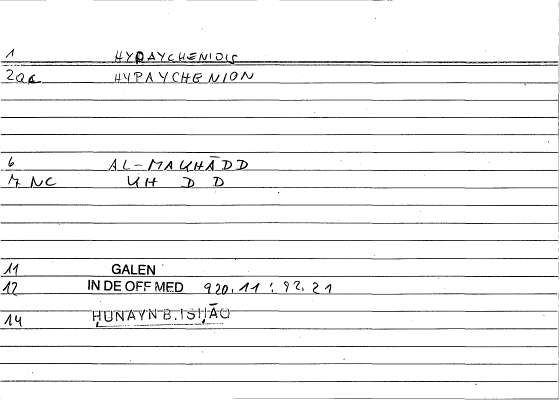 1 HYPAYCHENIOIS
2ac HYPAYCHENION
6 AL-MAUHĀDD
7 NC UH D D
11 GALEN
12 IN DE OFF MED 920.11 : 92.21
14 ḤUNAYN B. ISḤĀQ